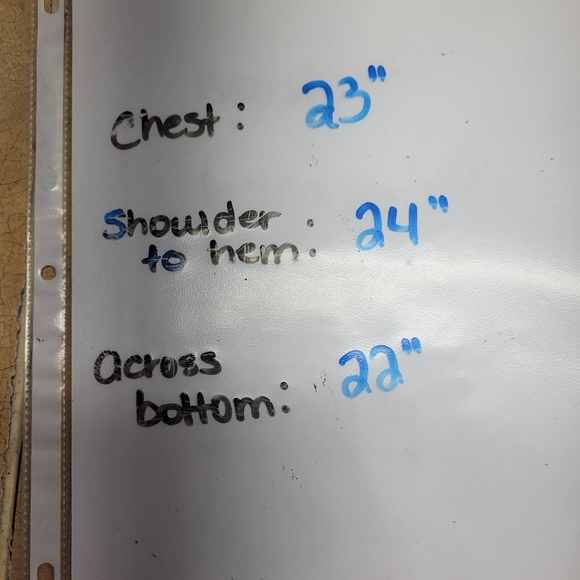 Chest: 23"
Shoulder : 24"
to hem.
across
bottom: 22"